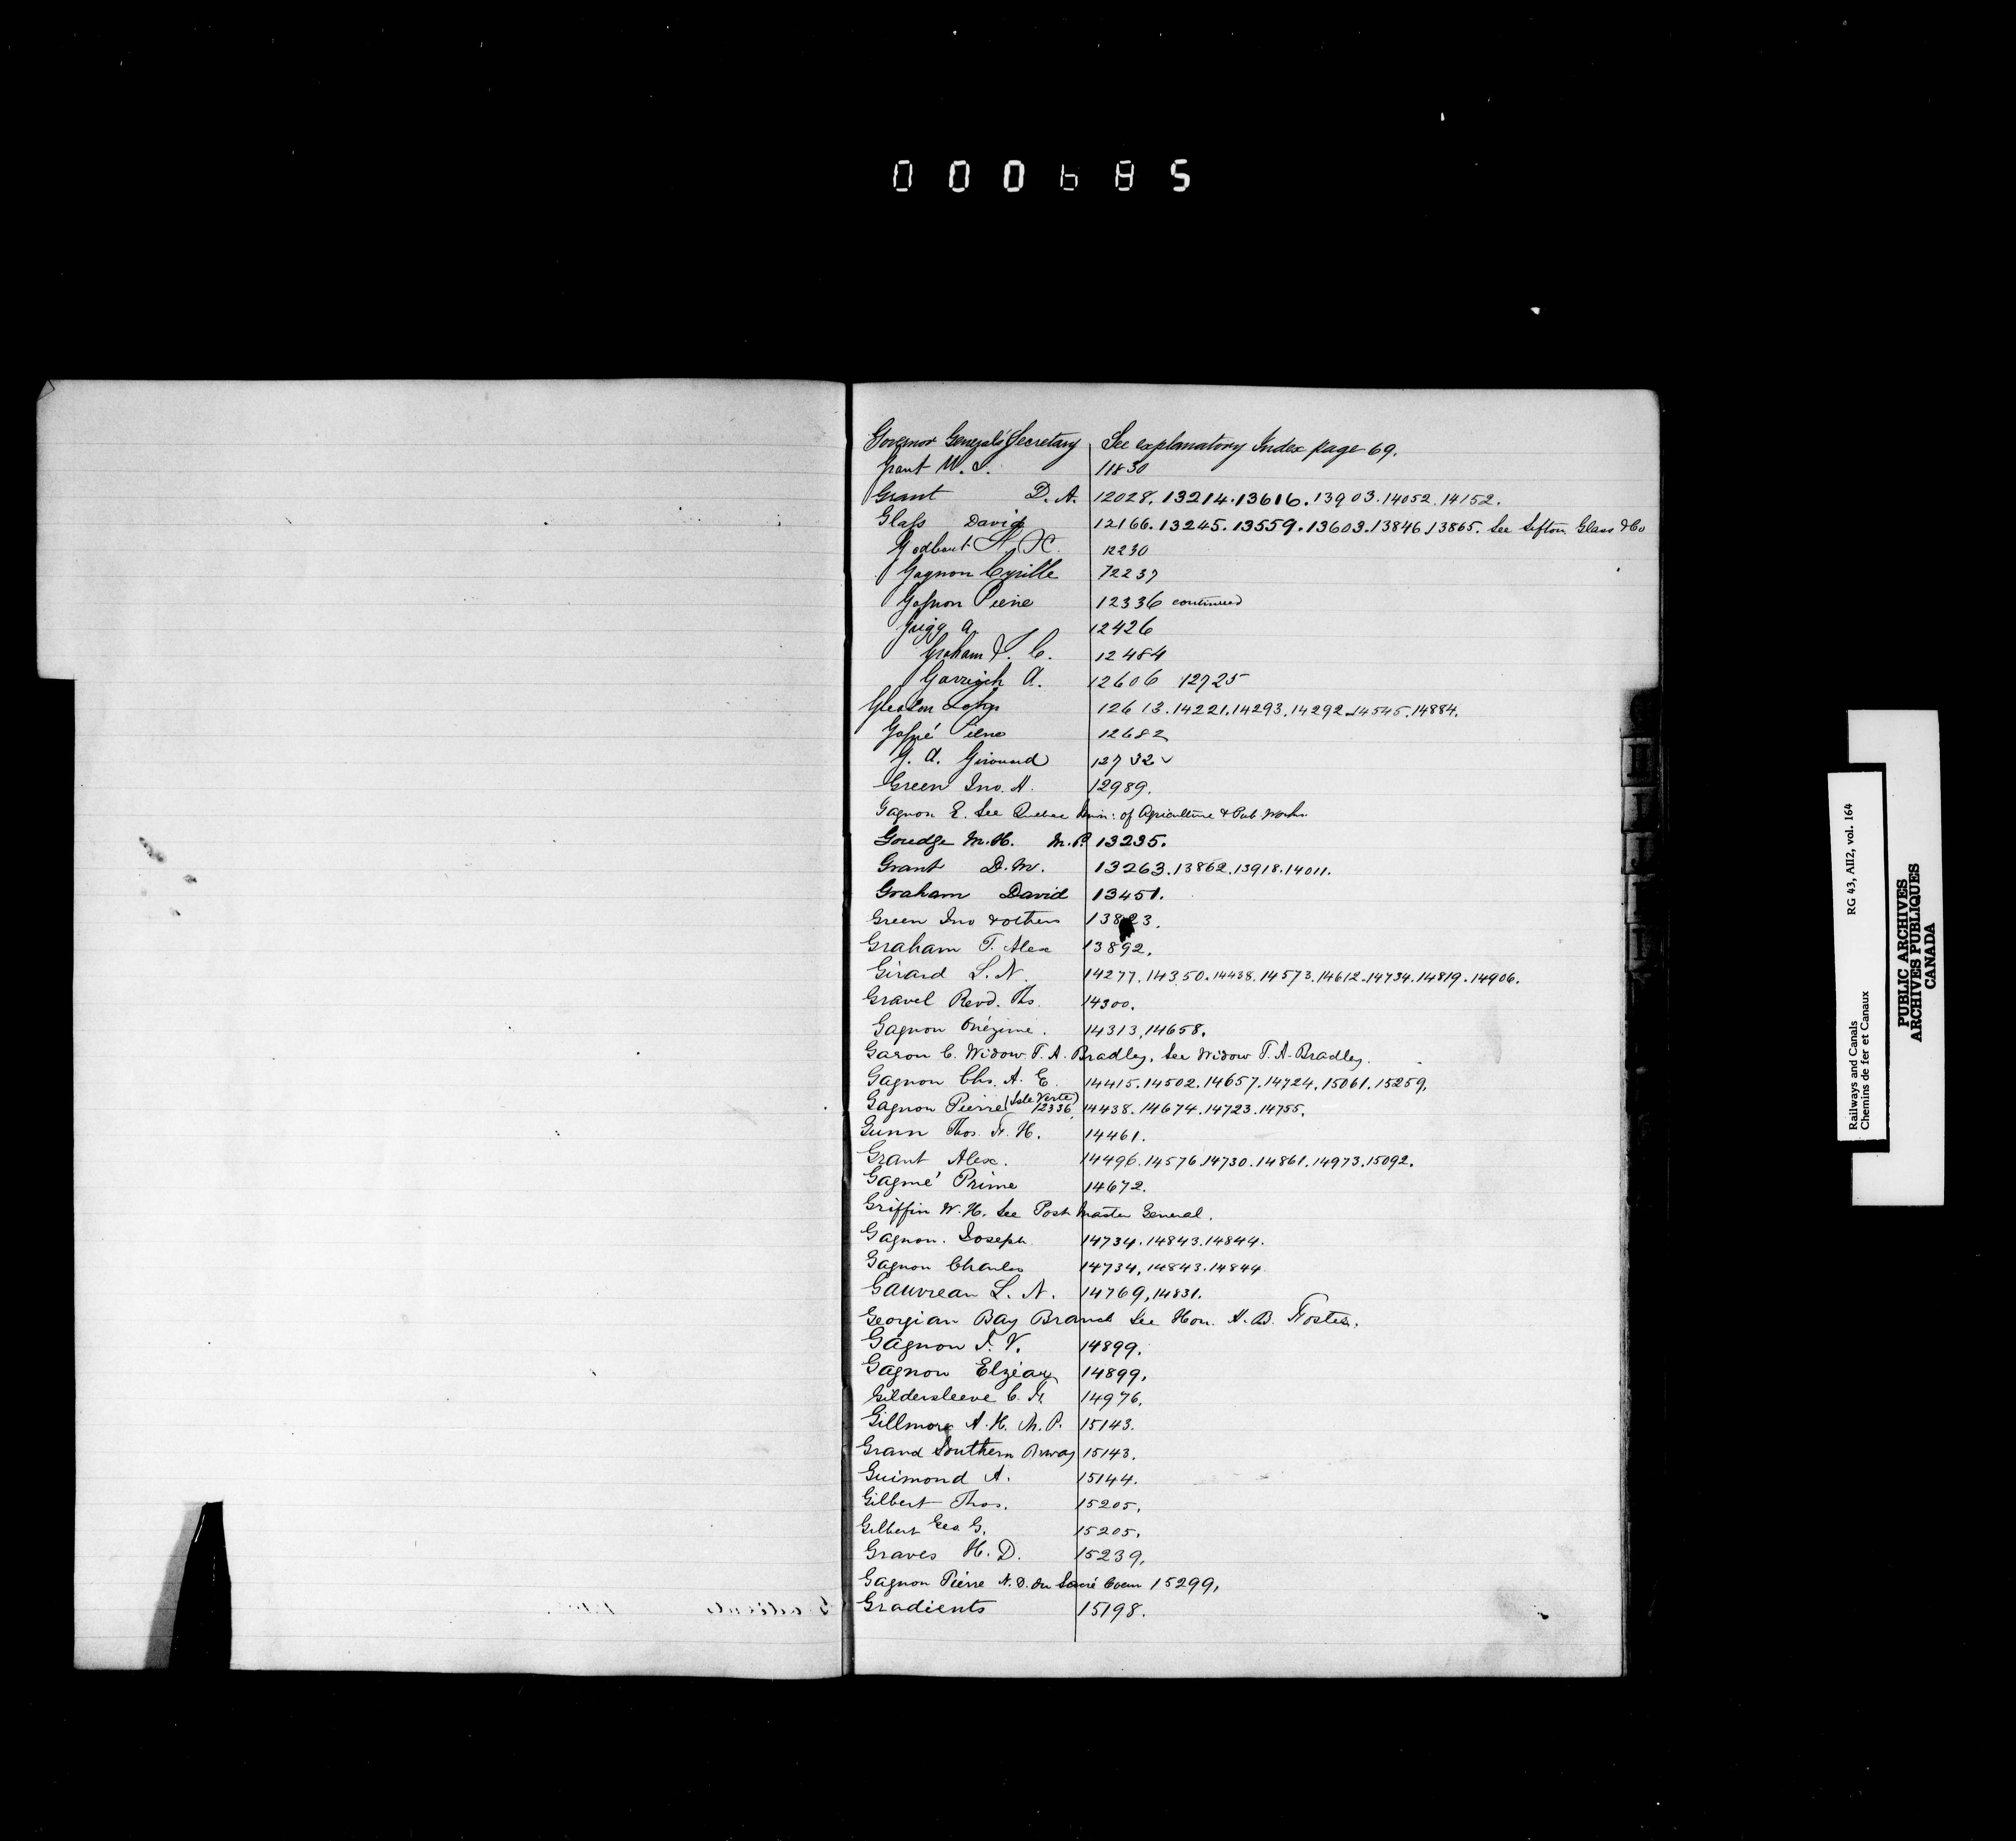 000685
Governor General's Secretary See explanatory Index page 69.
Grant W. 11830
Grant D. A. 12028. 13214. 13616. 13903. 14052. 14152.
Glass David 12166. 13245. 13559. 13603. 13846. 13865. See Sifton Glass & Co
Godbout 12230
Gagnon Cyrille 12237
Gagnon Pierre 12336 continued
Grigg A. 12426
Graham C. 12484
Garrigh A. 12606 12725
Gleason John 12613. 14221. 14293. 14292. 14545. 14884.
Gagné Pierre 12682
G. A. Girouard 12732
Green Jno. A. 12989.
Gagnon E. See Quebec Min: of Agriculture & Pub Works
Goudge M. H. M. P. 13235.
Grant D. M. 13263. 13862. 13918. 14011.
Graham David 13451.
Green Jno & others 13823.
Graham T. Alex 13892.
Girard L. N. 14277. 14350. 14438. 14573. 14612. 14734. 14819. 14906.
Gravel Revd. Ths. 14300.
Gagnon Onézime. 14313. 14658.
Garon C. Widow T. A. Bradley, See Widow T. A. Bradley.
Gagnon Chs. A. E. 14415. 14502. 14657. 14724. 15061. 15259.
Gagnon Pierre (Isle Verte) 12336. 14438. 14674. 14723. 14755.
Gunn Thos. F. H. 14461.
Grant Alex. 14496. 14576. 14730. 14861. 14973. 15092.
Gagné Prime 14672.
Griffin W. H. See Post Master General.
Gagnon. Joseph 14734. 14843. 14844.
Gagnon Charles 14734. 14843. 14844
Gauvreau L. N. 14769, 14831.
Georgian Bay Branch See Hon. A. B. Foster.
Gagnon J. V. 14899.
Gagnon Elzéar 14899.
Gildersleeve C. F. 14976.
Gillmore A. H. M. P. 15143.
Grand Southern Rway 15143.
Guimond A. 15144.
Gilbert Thos. 15205.
Gilbert Geo G. 15205.
Graves H. D. 15239.
Gagnon Pierre N. D. du Sacré Coeur 15299.
Gradients 15198.
Railways and Canals RG 43, AII2, vol. 164
Chemins de fer et Canaux
PUBLIC ARCHIVES
ARCHIVES PUBLIQUES
CANADA